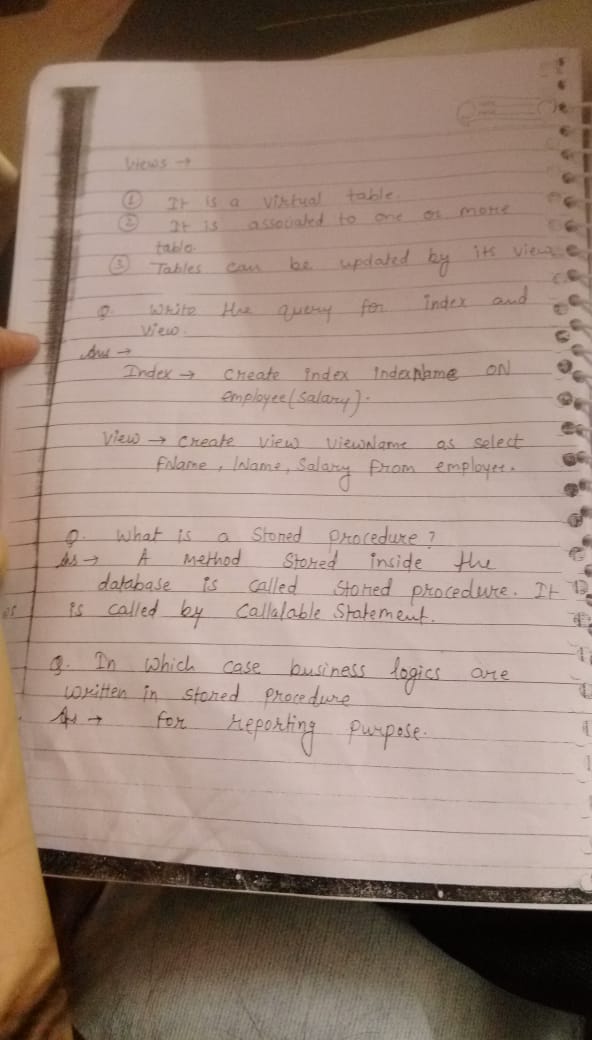 Views →
① It is a virtual table.
② It is associated to one or more
table.
③ Tables can be updated by its view
Q. Write the query for index and
view.
Ans →
Index → Create index IndexName ON
employee(salary).
View → Create view viewName as select
fName, lName, Salary from employee.
Q. What is a Stored procedure?
Ans → A Method Stored inside the
database is called stored procedure. It
is called by Callalable Statement.
Q. In which case business logics are
written in stored procedure
Ans → for reporting purpose.